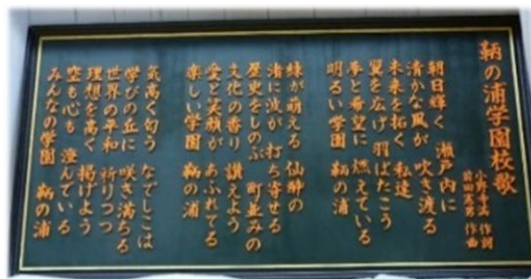 鞆の浦学園校歌
作詞
作曲
朝日輝く 瀬戸内に
清かな風が 吹き渡る
未来を拓く 私達
翼を広げ 羽ばたこう
夢と希望に 燃えている
明るい学園 鞆の浦
緑が萌える 仙酔の
渚に波が 打ち寄せる
歴史をしのぶ 町並みの
文化の香り 讃えよう
愛と笑顔が あふれてる
楽しい学園 鞆の浦
気高く匂う なでしこは
学びの丘に 咲き満ちる
世界の平和 祈りつつ
理想を高く 掲げよう
空も心も 澄んでいる
みんなの学園 鞆の浦